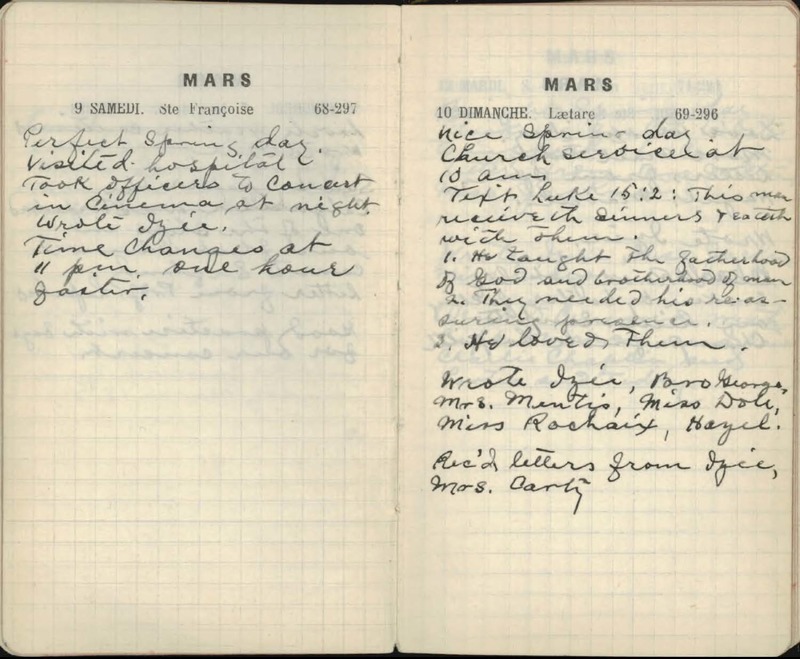 MARS
9 SAMEDI. Ste Françoise 68-297
Perfect Spring day.
Visited hospital.
Took officers to Concert
in Cinema at night.
Wrote Izie.
Time Changes at
11 p.m. one hour
faster.
MARS
10 DIMANCHE. Lætare 69-296
Nice Spring day
Church services at
10 am
Text Luke 15:2: This man
receiveth sinners & eateth
with them.
1. He taught the fatherhood
of God and brotherhood of men
2. They needed his reas-
suring presence.
3. He loved Them.
Wrote Izie, Bro George,
Mrs. Mentis, Miss Dole,
Miss Rochaix, Hazel.
Rec'd letters from Izie,
Mrs. Carty